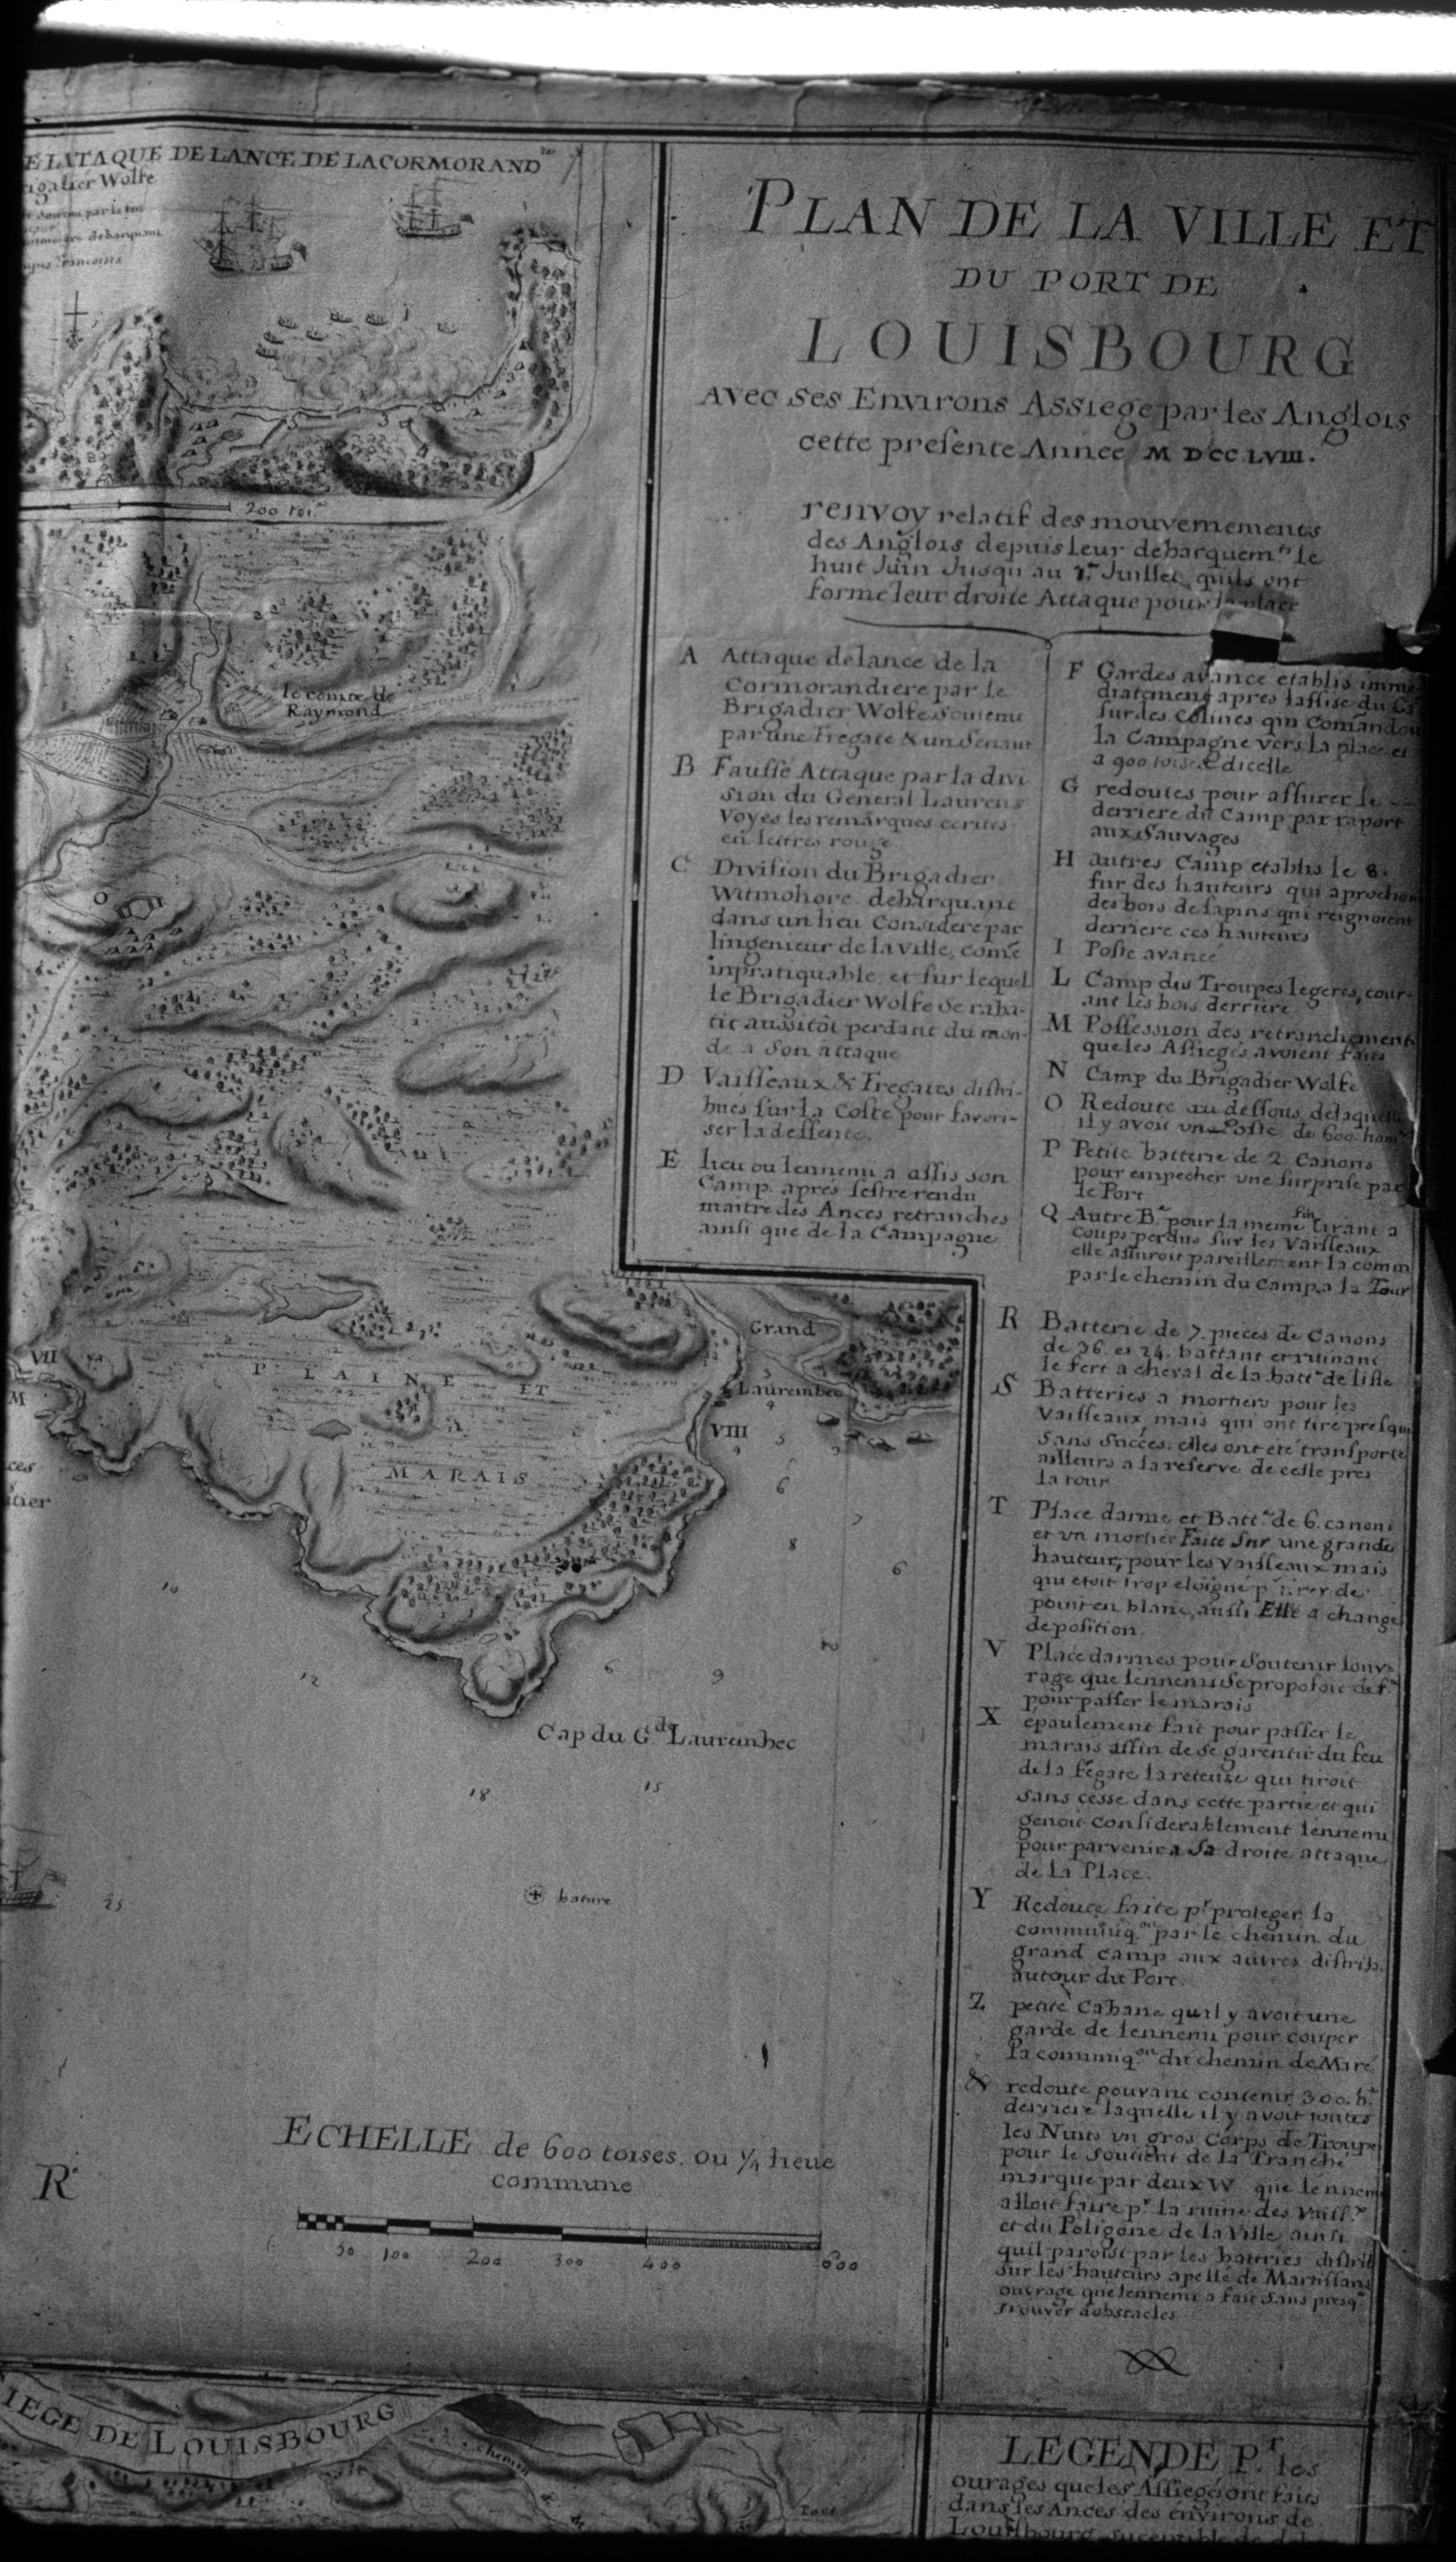 E LATAQUE DE LANCE DE LA CORMORAND
rigalier Wolfe
200 toi.
le comte de
Raymond
O
VII
M
PLAINE ET
MARAIS
Grand
Laurembec
VIII
Cap du G.de Laurembec
bature
R.
ECHELLE de 600 toises. ou 1/4 lieue
commune
50 100 200 300 400 600
IEGE DE LOUISBOURG
chemin
PLAN DE LA VILLE ET
DU PORT DE
LOUISBOURG
Avec Ses Environs Assiege par les Anglois
cette presente Année M DCC LVIII.
renvoy relatif des mouvemements
des Anglois depuis leur debarquem.t le
huit Juin Jusqu au 1.er Juillet quils ont
forme leur droite Attaque pour la place
A Attaque de lance de la
Cormorandiere par le
Brigadier Wolfe Soutenu
par une Fregate & un Senaut
B Fausse Attaque par la divi
sion du General Laurens
Voyes les remarques ecrites
en lettres rouge
C Division du Brigadier
Witmohore debarquant
dans un lieu Considere par
lingenieur de la ville, come
inpratiquable et sur lequel
le Brigadier Wolfe Se raba-
tit aussitôt perdant du mon-
de a Son attaque
D Vaisseaux & Fregates distri-
bués sur la Coste pour favori-
ser la dessente.
E lieu ou lennemi a assis son
Camp. aprés sestre rendu
maitre des Ances retranches
ainsi que de la Campagne
F Gardes avance etablis imme
diatement apres lassise du C.
sur des Colines qui Comandoi
la Campagne vers la place et
a 900 toises dicelle
G redoutes pour assurer le
derriere du Camp par raport
aux Sauvages
H autres Camp etablis le 8.
sur des hauteurs qui aprochoi
des bois de sapins qui reignoient
derriere ces hauteurs
I Poste avance
L Camp des Troupes legeres, cour-
ant les bois derriere
M Possession des retranchement
que les Assiegés avoient faits
N Camp du Brigadier Wolfe
O Redoute au dessous de laquelle
il y avoit un Poste de 600 hom
P Petite batterie de 2 canons
pour empecher une surprise par
le Port
Q Autre B. pour la meme fin tirant a
coups perdus sur les Vaisseaux
elle assuroit pareillement la comm
par le chemin du Camp a la Tour
R Batterie de 7. pieces de Canons
de 36. et 24. battant et ruinant
le fert a cheval de la batt. de lisle
S Batteries a mortiers pour les
Vaisseaux, mais qui ont tire presqu
sans succes. elles ont eté transporte
ailleurs a la reserve de celle pres
la tour
T Place darme et Batt. de 6. canons
et un mortier Faite Sur une grande
hauteur, pour les vaisseaux mais
qui etoit trop eloigné p. tirer de
point en blanc, ausi Elle a change
de position.
V Place darmes pour Soutenir louv
rage que lennemi Se proposoit de f.
pour passer le marais
X épaulement fait pour passer le
marais affin de se garentir du feu
de la fégate lareteuze qui tiroit
sans cesse dans cette partie et qui
genoit considerablement lennemi
pour parvenir a Sa droite attaque
de la Place.
Y Redoute faite p.r proteger la
communiq.on par le chemin du
grand camp aux autres distrib.
autour du Port.
Z petite Cabane quil y avoit une
garde de lennemi pour couper
la comuniq.on du chemin de Miré
& redoute pouvant contenir 300. h.
derriere laquelle il y avoit toutes
les Nuits un gros Corps de Troupe
pour le Soutient de la Tranche
marque par deux W que lennemi
alloit faire p.r la ruine des Vaiss.x
et du Poligone de la Ville ainsi
quil paroist par les batteries distrib
sur les hauteurs apellé de Martissans
ouvrage que lennemi a fait sans presq
trouver dobstacles
LEGENDE P.r les
ourages que les Assiegé ont faits
dans les Ances des environs de